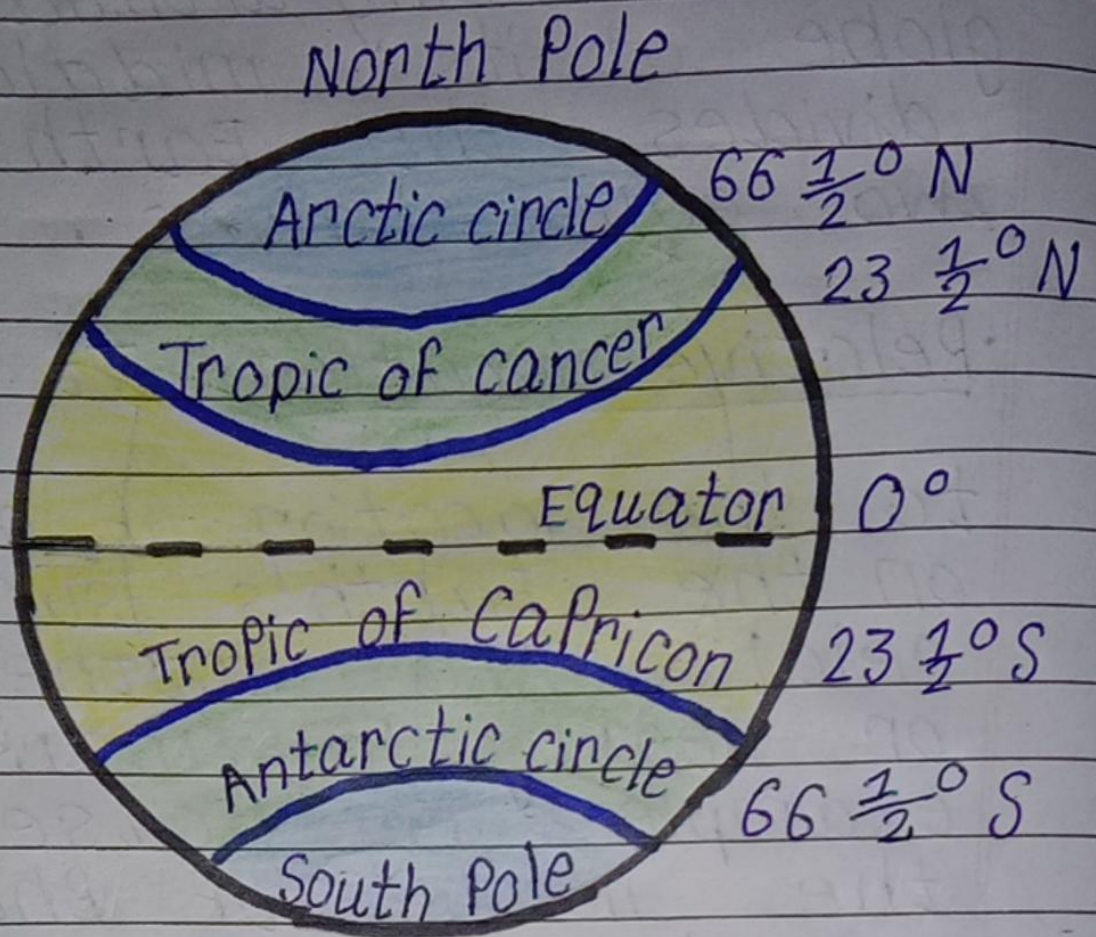 North Pole
Arctic circle 66 1/2° N
23 1/2° N
Tropic of cancer
Equator 0°
Tropic of Capricon 23 1/2° S
Antarctic circle 66 1/2° S
South Pole